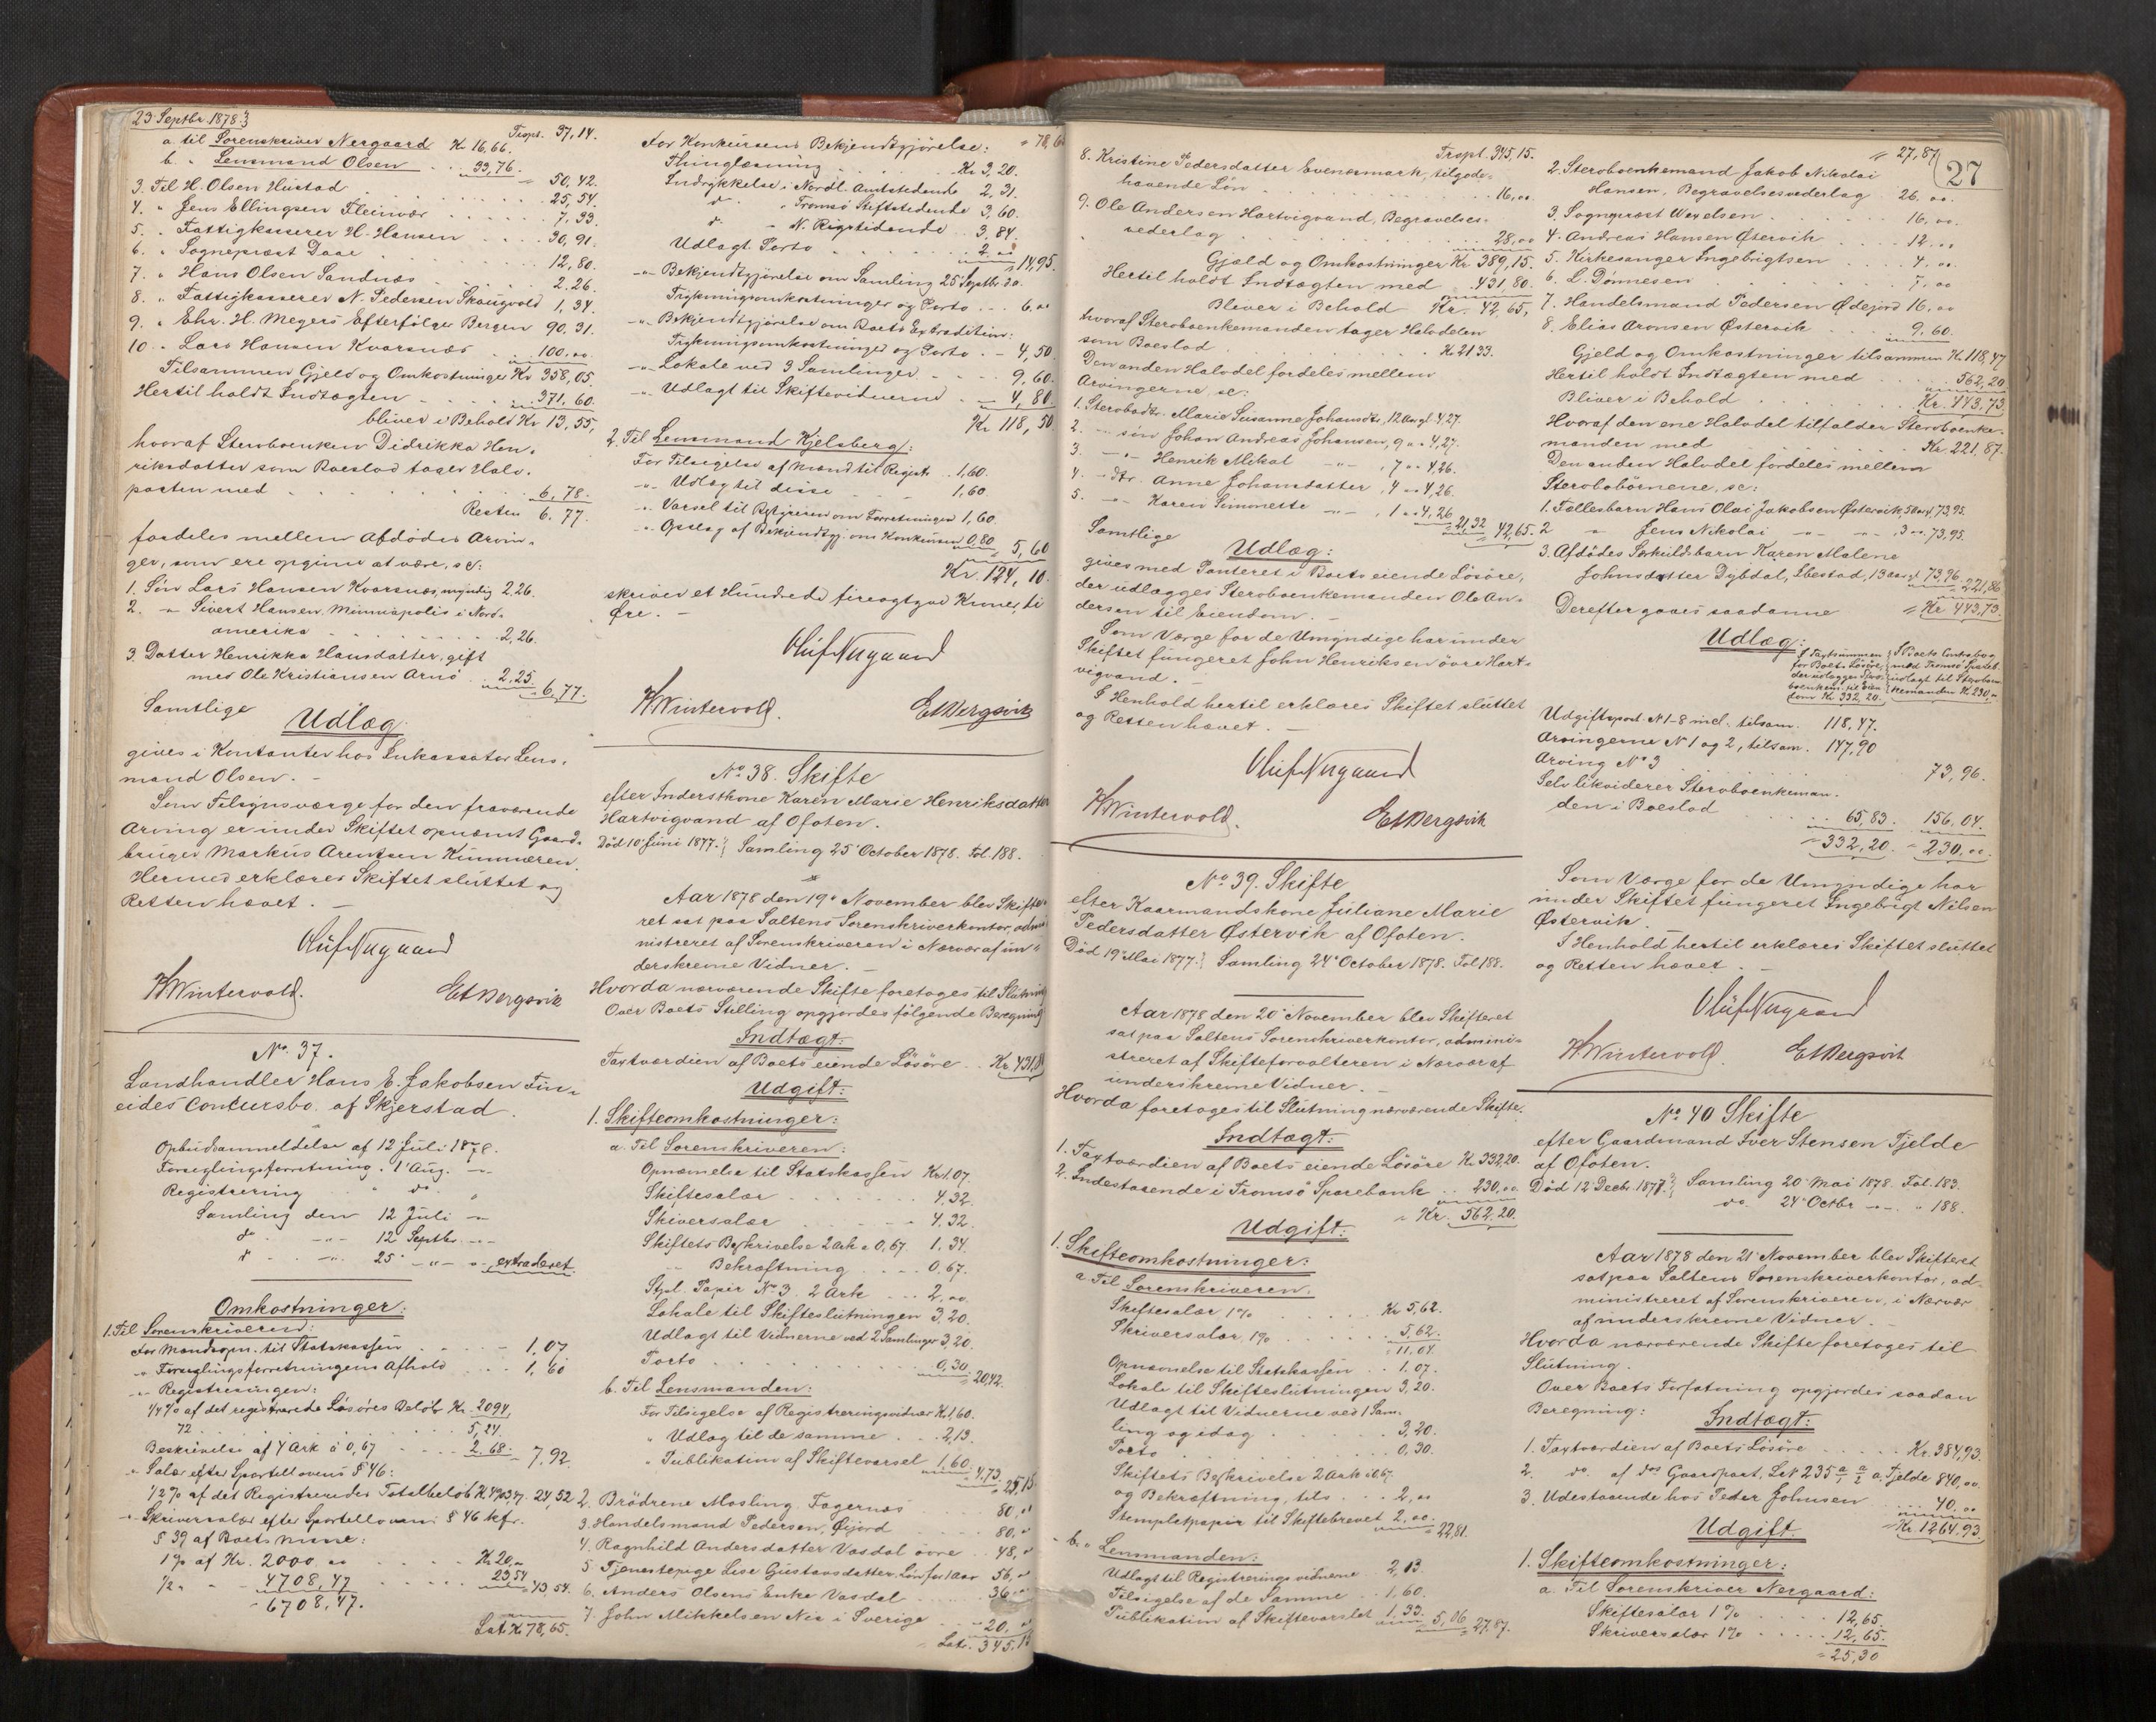 23 Septbr. 1878.}
Trspt. 37,14.
a. til Sorenskriver Nergaard Kr 16,66.
b. " Lensmand Olsen . . 33,76.
50,42.
3. Til H. Olsen Hustad . . . 25,54.
4. " Jens Ellingsen Fleinvær . . . 7,33.
5. " Fattigkasserer H. Hansen . . . 30,91.
6. " Sognepræst Daae . . . 12,80.
7. " Hans Olsen Sandnæs . . . 2,26.
8. " Fattigkasserer N. Pedersen Skaugvold 1,34.
9. " Ehr. H. Megers Efterfølger Bergen 90,31.
10. " Lars Hansen Kvarsnæs . . 100,00.
Tilsammen Gjeld og Omkostninger Kr 358,05.
Hertil holdt Indtægten . . . 371,60.
bliver i Behold Kr 13,55,
hvoraf Sterboenken Didrikka Hen-
riksdatter som Boeslod tager Halv-
parten med . . . 6,78.
Resten 6,77.
fordeles mellem Afdødes Arvin-
ger, som ere opgivne at være, sc:
1. Søn Lars Hansen Kvarsnæs, myndig 2,26.
2. " Sivert Hansen, Minneapolis i Nord-
amerika . . . 2,26.
3. Datter Henrikka Hansdatter, gift
med Ole Kristiansen Arnø . 2,25.
6,77.
Samtlige
Udlæg
gives i Kontanter hos Inkassator Lens-
mand Olsen. -
Som Tilsynsværge for den fraværende
Arving er under Skiftet opnævnt Gaard-
bruger Markus Arentsen Kummæren.
Hermed erklæres Skiftet sluttet og
Retten hævet. -
Oluf Nergaard
H Wintervold.
Et Bergsvik
No. 37.
Landhandler Hans E. Jakobsen Fin-
eides Concursbo af Skjerstad.
Opbudsanmeldelse af 12 Juli 1878.
Forseglingsforretning. 1' Aug. -"-
Registrering " do. "
Samling den 12 Juli -"-
do -"- 12 Septbr. -"-
do -"- 25' -"- " extraderet.
Omkostninger:
1. Til Sorenskriveren:
For Mandsopn. til Statskassen . . . 1,07
" Forseglingsforretningens Afhold . . . 1,60
-"- Registreringen:
1/4 % af det registrerede Løsøres Beløb Kr. 2094,
72 . . . 5,24.
Beskrivelse af 4 Ark à 0,67 . . . 2,68. 7,92.
" Salær efter Sportellovens § 46:
1/2 % af det Registreredes Totalbeløb K. 4903,47. 24,52
" Skriversalær efter Sportelloven § 46 kfr.
§ 39 af Boets Masse:
1 % af Kr. 2000,00 . . . Kr 20,00
1/2 " - " - 4708,47 . . . 23,54
43,54.
- 6708,47.
Lat. Kr 78,65.
" 78,65
For Konkursens Bekjendtgjørelse:
Thinglæsning . . . Kr 3,20.
Indrykkelse i Nordl. Amtstidende 2,31.
do " Tromsø Stiftstidende 3,60.
do " N. Rigstidende . . 3,84.
Udlagt Porto . . . 2,00
14,95.
-"- Bekjendtgjørelse om Samling 25' Septbr. d.a.
Trykningsomkostninger og Porto . . . 6,00
-"- Bekjendtgjørelse om Boets Extradition:
Trykningsomkostninger og Porto . - 4,50
-"- Lokale ved 3 Samlinger . . . 9,60.
-"- Udlagt til Skiftevidnerne . . - 4,80.
Kr 118,50
2. Til Lensmand Kjelsberg:
For Tilsigelse af Mænd til Registr. . 1,60.
-"- Udlæg til disse . . 1,60.
-"- Varsel til Borgeren om Forretningen 1,60.
-"- Opslag af Bekjendtgj. om Konkursen 0,80
5,60
Kr. 124,10
skriver et Hundrede fireogtyve Kroner, ti
Øre. -
Oluf Nergaard
H Wintervold.
Et Bergsvik
No. 38. Skifte
efter Inderstkone Karen Marie Henriksdatter
Hartvigvand af Ofoten.
Død 10' Juni 1877.} Samling 25' October 1878. Fol. 188.
Aar 1878 den 19' November blev Skifte-
ret sat paa Saltens Sorenskriverkontor, admi-
nistreret af Sorenskriveren i Nærvær af un-
derskrevne Vidner. -
Hvorda nærværende Skifte foretages til Slutning
Over Boets Stilling opgjordes følgende Beregning
Indtægt:
Taxtværdien af Boets eiende Løsøre . . Kr. 431,80
Udgift:
1. Skifteomkostninger:
a. Til Sorenskriveren:
Opnævnelse til Statskassen Kr. 1,07.
Skiftesalær . . . 4,32.
Skriversalær . . . 4,32.
Skiftets Beskrivelse 2 Ark a 0,67. 1,34.
-"- Bekræftning . . . 0,67.
Stpl. Papir No. 3. 2 Ark . . 2,00.
Lokale til Skifteslutningen 3,20.
Udlagt til Vidnerne ved 2 Samlinger 3,20.
Porto . . . 0,30
20,42.
b. Til Lensmanden:
For Tilsigelse af Registreringsvidner Kr. 1,60.
" Udlæg til de samme . . . 2,13.
" Publikation af Skiftevarsel 1,60.
4,73. 25,15
2. Brødrene Mosling, Fagernæs . . . 80,00
3. Handelsmand Pedersen, Øijord . . . 80,00
4. Ragnhild Andersdatter Vasdal øvre . 48,00
5. Tjenestepige Lise Gustavsdatter, Løn for 1 Aar 56,00
6. Anders Olsens Enke Vasdal . . . 36,00
7. John Mikkelsen Nia i Sverige . . . 20,00
Lat. 345,15
Trspt. 345,15.
8. Kristine Pedersdatter Evenesmark, tilgode-
havende Løn . . . 16,00.
9. Ole Andersen Hartvigvand, Begravelses-
vederlag . . . 28,00
Gjæld og Omkostninger Kr. 389,15.
Hertil holdt Indtægten med . 431,80.
Bliver i Behold Kr. 42,65,
hvoraf Sterboenkemanden tager Halvdelen
som Boeslod . . . Kr 21,33.
Den anden Halvdel fordeles mellem
Arvingerne, sc:
1. Sterbodtr. Marie Susanne Johansdtr., 12 Aar gl. 4,27.
2. -"- søn Johan Andreas Johansen, 9 " " 4,27.
3. -"- " Henrik Mikal -"- , 7 " " 4,26.
4. -"- dtr. Anne Johansdatter , 4 " " 4,26.
5. -"- " Karen Simmette -"- , 1 " " 4,26
21,32 42,65.
Samtlige
Udlæg:
gives med Panteret i Boets eiende Løsøre,
der udlægges Sterboenkemanden Ole An-
dersen til Eiendom. -
Som Værge for de Umyndige har under
Skiftet fungeret John Henriksen øvre Hart-
vigvand. -
I Henhold hertil erklæres Skiftet sluttet
og Retten hævet. -
Oluf Nergaard
H Wintervold.
Et Bergsvik
No. 39. Skifte
efter Kaarmandskone Juliane Marie
Pedersdatter Østervik af Ofoten.
Død 19' Mai 1877.} Samling 24' October 1878. Fol 188.
Aar 1878 den 20' November blev Skifteret
sat paa Saltens Sorenskriverkontor, admini-
streret af Skifteforvalteren i Nærvær af
underskrevne Vidner. -
Hvorda foretages til Slutning nærværende Skifte.
Indtægt:
1. Taxtværdien af Boets eiende Løsøre Kr 332,20.
2. Indestaaende i Tromsø Sparebank . . 230,00.
" Kr. 562,20.
Udgift:
1. Skifteomkostninger:
a. Til Sorenskriveren.
Skiftesalær 1% . . . Kr 5,62.
Skriversalær 1% . . . 5,62.
11,04.
Opnævnelse til Statskassen . . 1,07.
Lokale til Skifteslutningen 3,20.
Udlagt til Vidnerne ved 1 Sam-
ling og idag . . . 3,20.
Porto . . . 0,30.
Skiftets Beskrivelse 2 Ark à 0,67.
og Bekræftning, tils. . . 2,00
Stempletpapir til Skiftebrevet 2,00.
22,81.
b. " Lensmanden:
Udlagt til Registreringsvidnerne . 2,13
Tilsigelse af de Samme . . 1,60.
Publikation af Skiftevarslet 1,33.
5,06 27,87.
" 27,87
27
2. Sterboenkemand Jakob Nikolai
Hansen, Begravelsesvederlag 26,00.
3. Sognepræst Wexelsen . . . 16,00.
4. Andreas Hansen Østervik . . . 12,00
5. Kirkesanger Ingebrigtsen . . . 4,00.
6. L. Dønnesen . . . 7,00
7. Handelsmand Pedersen Ødejord 16,00
8. Elias Aronsen Østervik . . . 9,60.
Gjeld og Omkostninger tilsammen Kr 118,47
Hertil holdt Indtægten med . . . 562,20
Bliver i Behold . . . Kr. 443,73
Hvoraf den ene Halvdel tilfalder Sterboenke-
manden med . . . Kr. 221,87.
Den anden Halvdel fordeles mellem
Sterbobørnene, sc:
1. Fællesbarn Hans Olai Jakobsen Østervik, 5 Aar gl. 73,95.
2 " Jens Nikolai -"- -"- , 3 " " 73,95.
3. Afdødes Særkuldsbarn Karen Malene
Johnsdatter Dybdal, Ibestad, 13 Aar gl 73,96
221,86
Derefter gaaes saadanne " Kr 443,73.
Udlæg:
I Taxtsummen
for Boets Løsøre,
der udlægges Sterbo-
boenkem. til Eien-
dom Kr. 332,20.
I Boets Contrabog
med Tromsø Spareb.
udlagt til Sterboen-
kemanden Kr. 230,00
Udgiftspost. N 1-8 incl. tilsam. 118,47.
Arvingerne N 1 og 2, tilsam. 147,90
Arving No 3 . . . 73,96.
Selv likviderer Sterboenkeman-
den i Boeslod . . . 65,83. 156,04.
" 332,20. " 230,00.
Som Værge for de Umyndige har
under Skiftet fungeret Ingebrigt Nilsen
Østervik.
I Henhold hertil erklæres Skiftet sluttet
og Retten hævet. -
Oluf Nergaard
H Wintervold
Et Bergsvik
No. 40 Skifte
efter Gaardmand Iver Stensen Fjelde
af Ofoten.
Død 12' Decbr. 1877.} Samling 20' Mai 1878. Fol. 183.
do. 24' Octbr -"- " 188.
Aar 1878 den 21' November blev Skifteret
sat paa Saltens Sorenskriverkontor, ad-
ministreret af Sorenskriveren, i Nærvær
af underskrevne Vidner. -
Hvorda nærværende Skifte foretages til
Slutning.
Over Boets Forfatning opgjordes saadan
Beregning:
Indtægt:
1. Taxtværdien af Boets Løsøre . . . Kr. 384,93.
2. do. af dets Gaardpart, L. N 235 a. Fjelde 840,00
3. Udestaaende hos Peder Johnsen . . . 40,00
Kr. 1264,93.
Udgift.
1. Skifteomkostninger:
a. Til Sorenskriver Nergaard:
Skiftesalær 1% . . . 12,65.
Skriversalær 1% . . . 12,65.
25,30